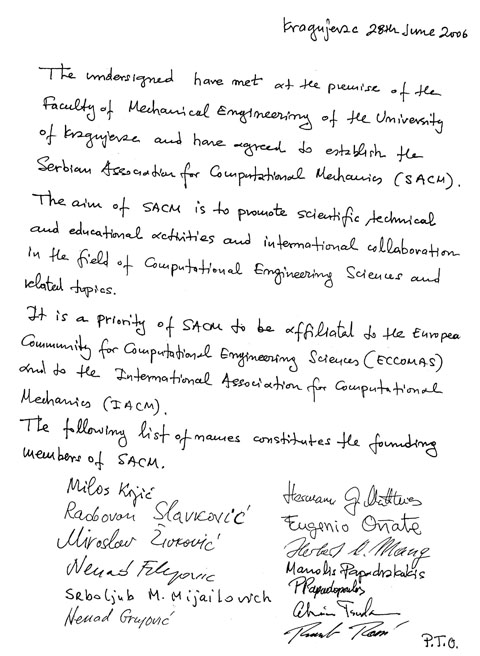 Kragujevac 28th June 2006
The undersigned have met at the premise of the
Faculty of Mechanical Engineering of the University
of Kragujevac and have agreed to establish the
Serbian Association for Computational Mechanics (SACM).
The aim of SACM is to promote scientific technical
and educational activities and international collaboration
in the field of Computational Engineering Sciences and
related topics.
It is a priority of SACM to be affiliated to the Europea
Community for Computational Engineering Sciences (ECCOMAS)
and to the International Association for Computational
Mechanics (IACM).
The following list of names constitutes the founding
members of SACM.
Milos Kojić
Radovan Slavković
Miroslav Živković
Nenad Filipovic
Srboljub M. Mijailovich
Nenad Grujović
Hermann G. Matthies
Eugenio Oñate
Herbert A. Mang
Manolis Papadrakakis
P Papadopoulos
P.T.O.